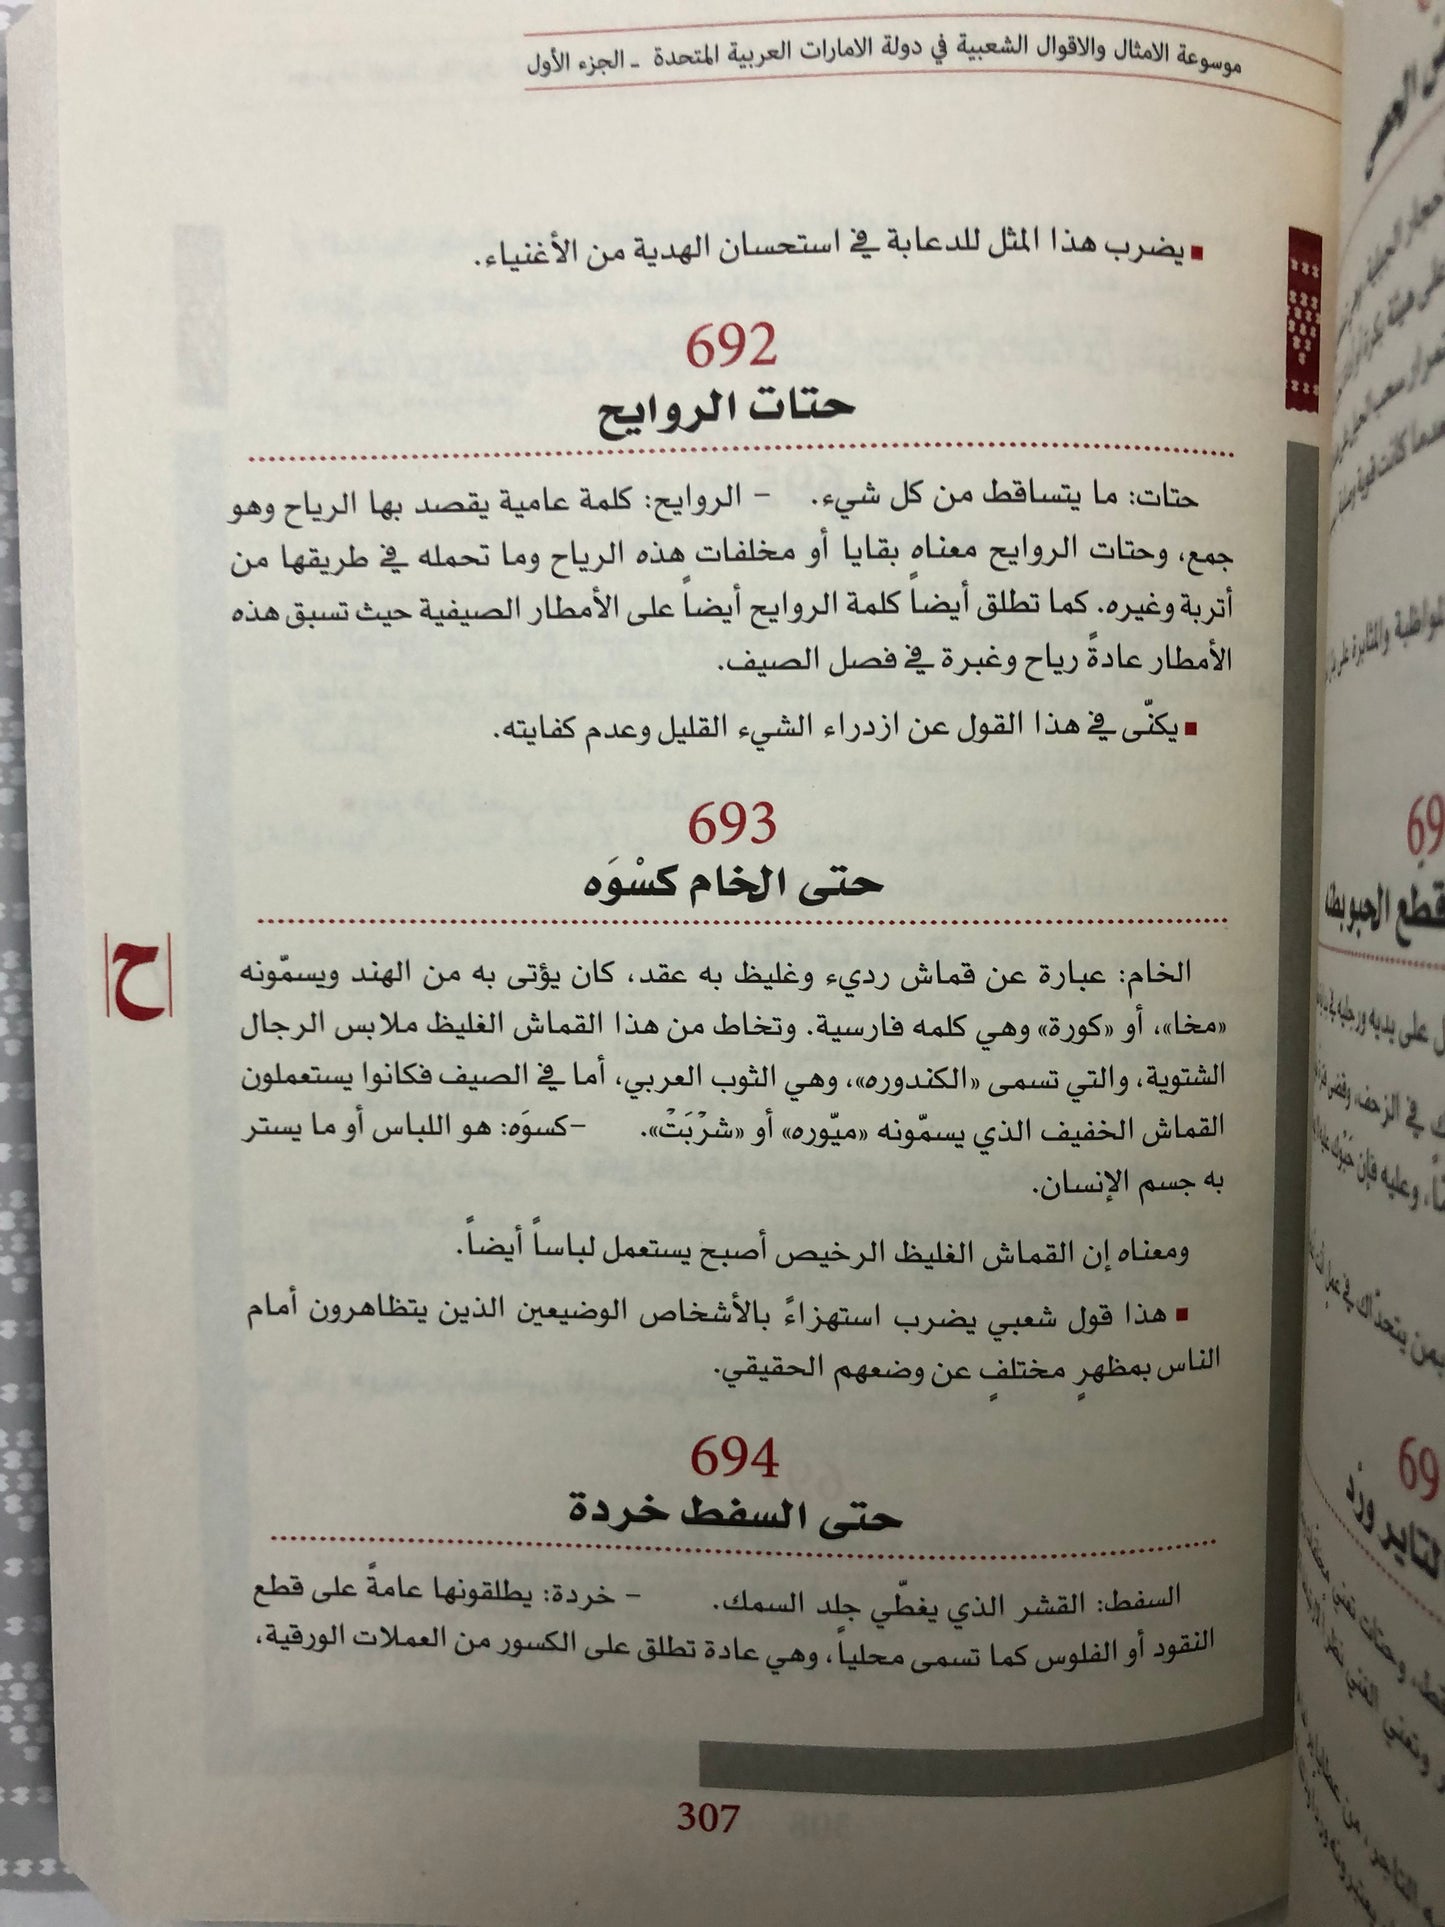 موسوعة الامثال والاقوال الشعبية في دولة الامارات العربية المتحدة - الجزء الأول
▪ يضرب هذا المثل للدعابة في استحسان الهدية من الأغنياء.
692
حتات الروايح
حتات: ما يتساقط من كل شيء. – الروايح: كلمة عامية يقصد بها الرياح وهو
جمع، وحتات الروايح معناه بقايا أو مخلفات هذه الرياح وما تحمله في طريقها من
أتربة وغيره. كما تطلق أيضاً كلمة الروايح أيضاً على الأمطار الصيفية حيث تسبق هذه
الأمطار عادةً رياح وغبرة في فصل الصيف.
▪ يكنّى في هذا القول عن ازدراء الشيء القليل وعدم كفايته.
693
حتى الخام كسْوَه
الخام: عبارة عن قماش رديء وغليظ به عقد، كان يؤتى به من الهند ويسمّونه
«مخا»، أو «كورة» وهي كلمه فارسية. وتخاط من هذا القماش الغليظ ملابس الرجال
الشتوية، والتي تسمى «الكندوره»، وهي الثوب العربي، أما في الصيف فكانوا يستعملون
القماش الخفيف الذي يسمّونه «ميّوره» أو «شرْبَتْ». –كسوَه: هو اللباس أو ما يستر
به جسم الإنسان.
ومعناه إن القماش الغليظ الرخيص أصبح يستعمل لباساً أيضاً.
▪ هذا قول شعبي يضرب استهزاءً بالأشخاص الوضيعين الذين يتظاهرون أمام
الناس بمظهرٍ مختلفٍ عن وضعهم الحقيقي.
ح
694
حتى السفط خردة
السفط: القشر الذي يغطّي جلد السمك. – خردة: يطلقونها عامةً على قطع
النقود أو الفلوس كما تسمى محلياً، وهي عادة تطلق على الكسور من العملات الورقية،
307